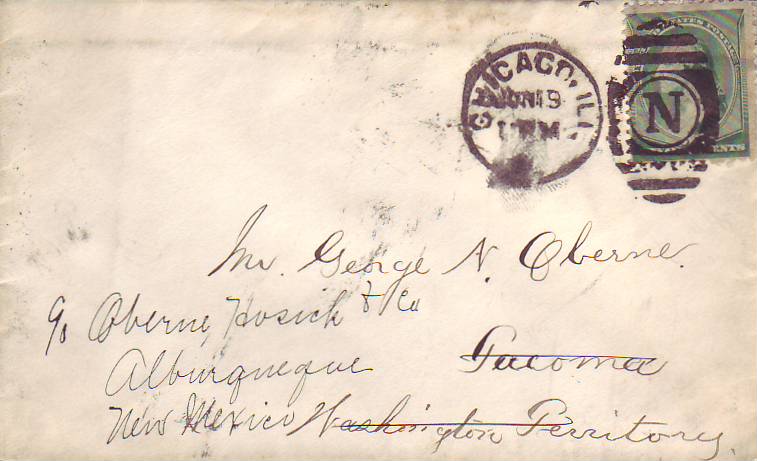 CHICAGO, ILL.
JUN 19
N
CENTS
Mr. George N. Oberne.
c/o Oberne, Hosick & Co
Alburquerque
Tacoma
New Mexico Washington Territory.